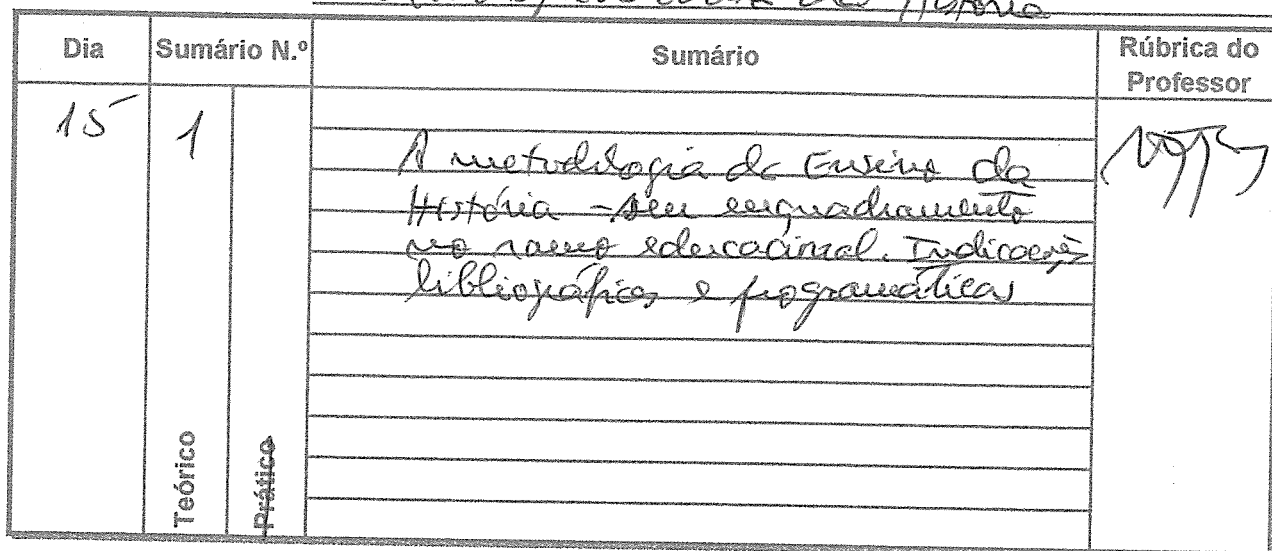 da História
Dia Sumário N.º Sumário Rúbrica do Professor
15 1
A metodologia do Ensino da
História - seu enquadramento
no ramo educacional. Indicações
bibliográficas e programáticas
Teórico
Prático